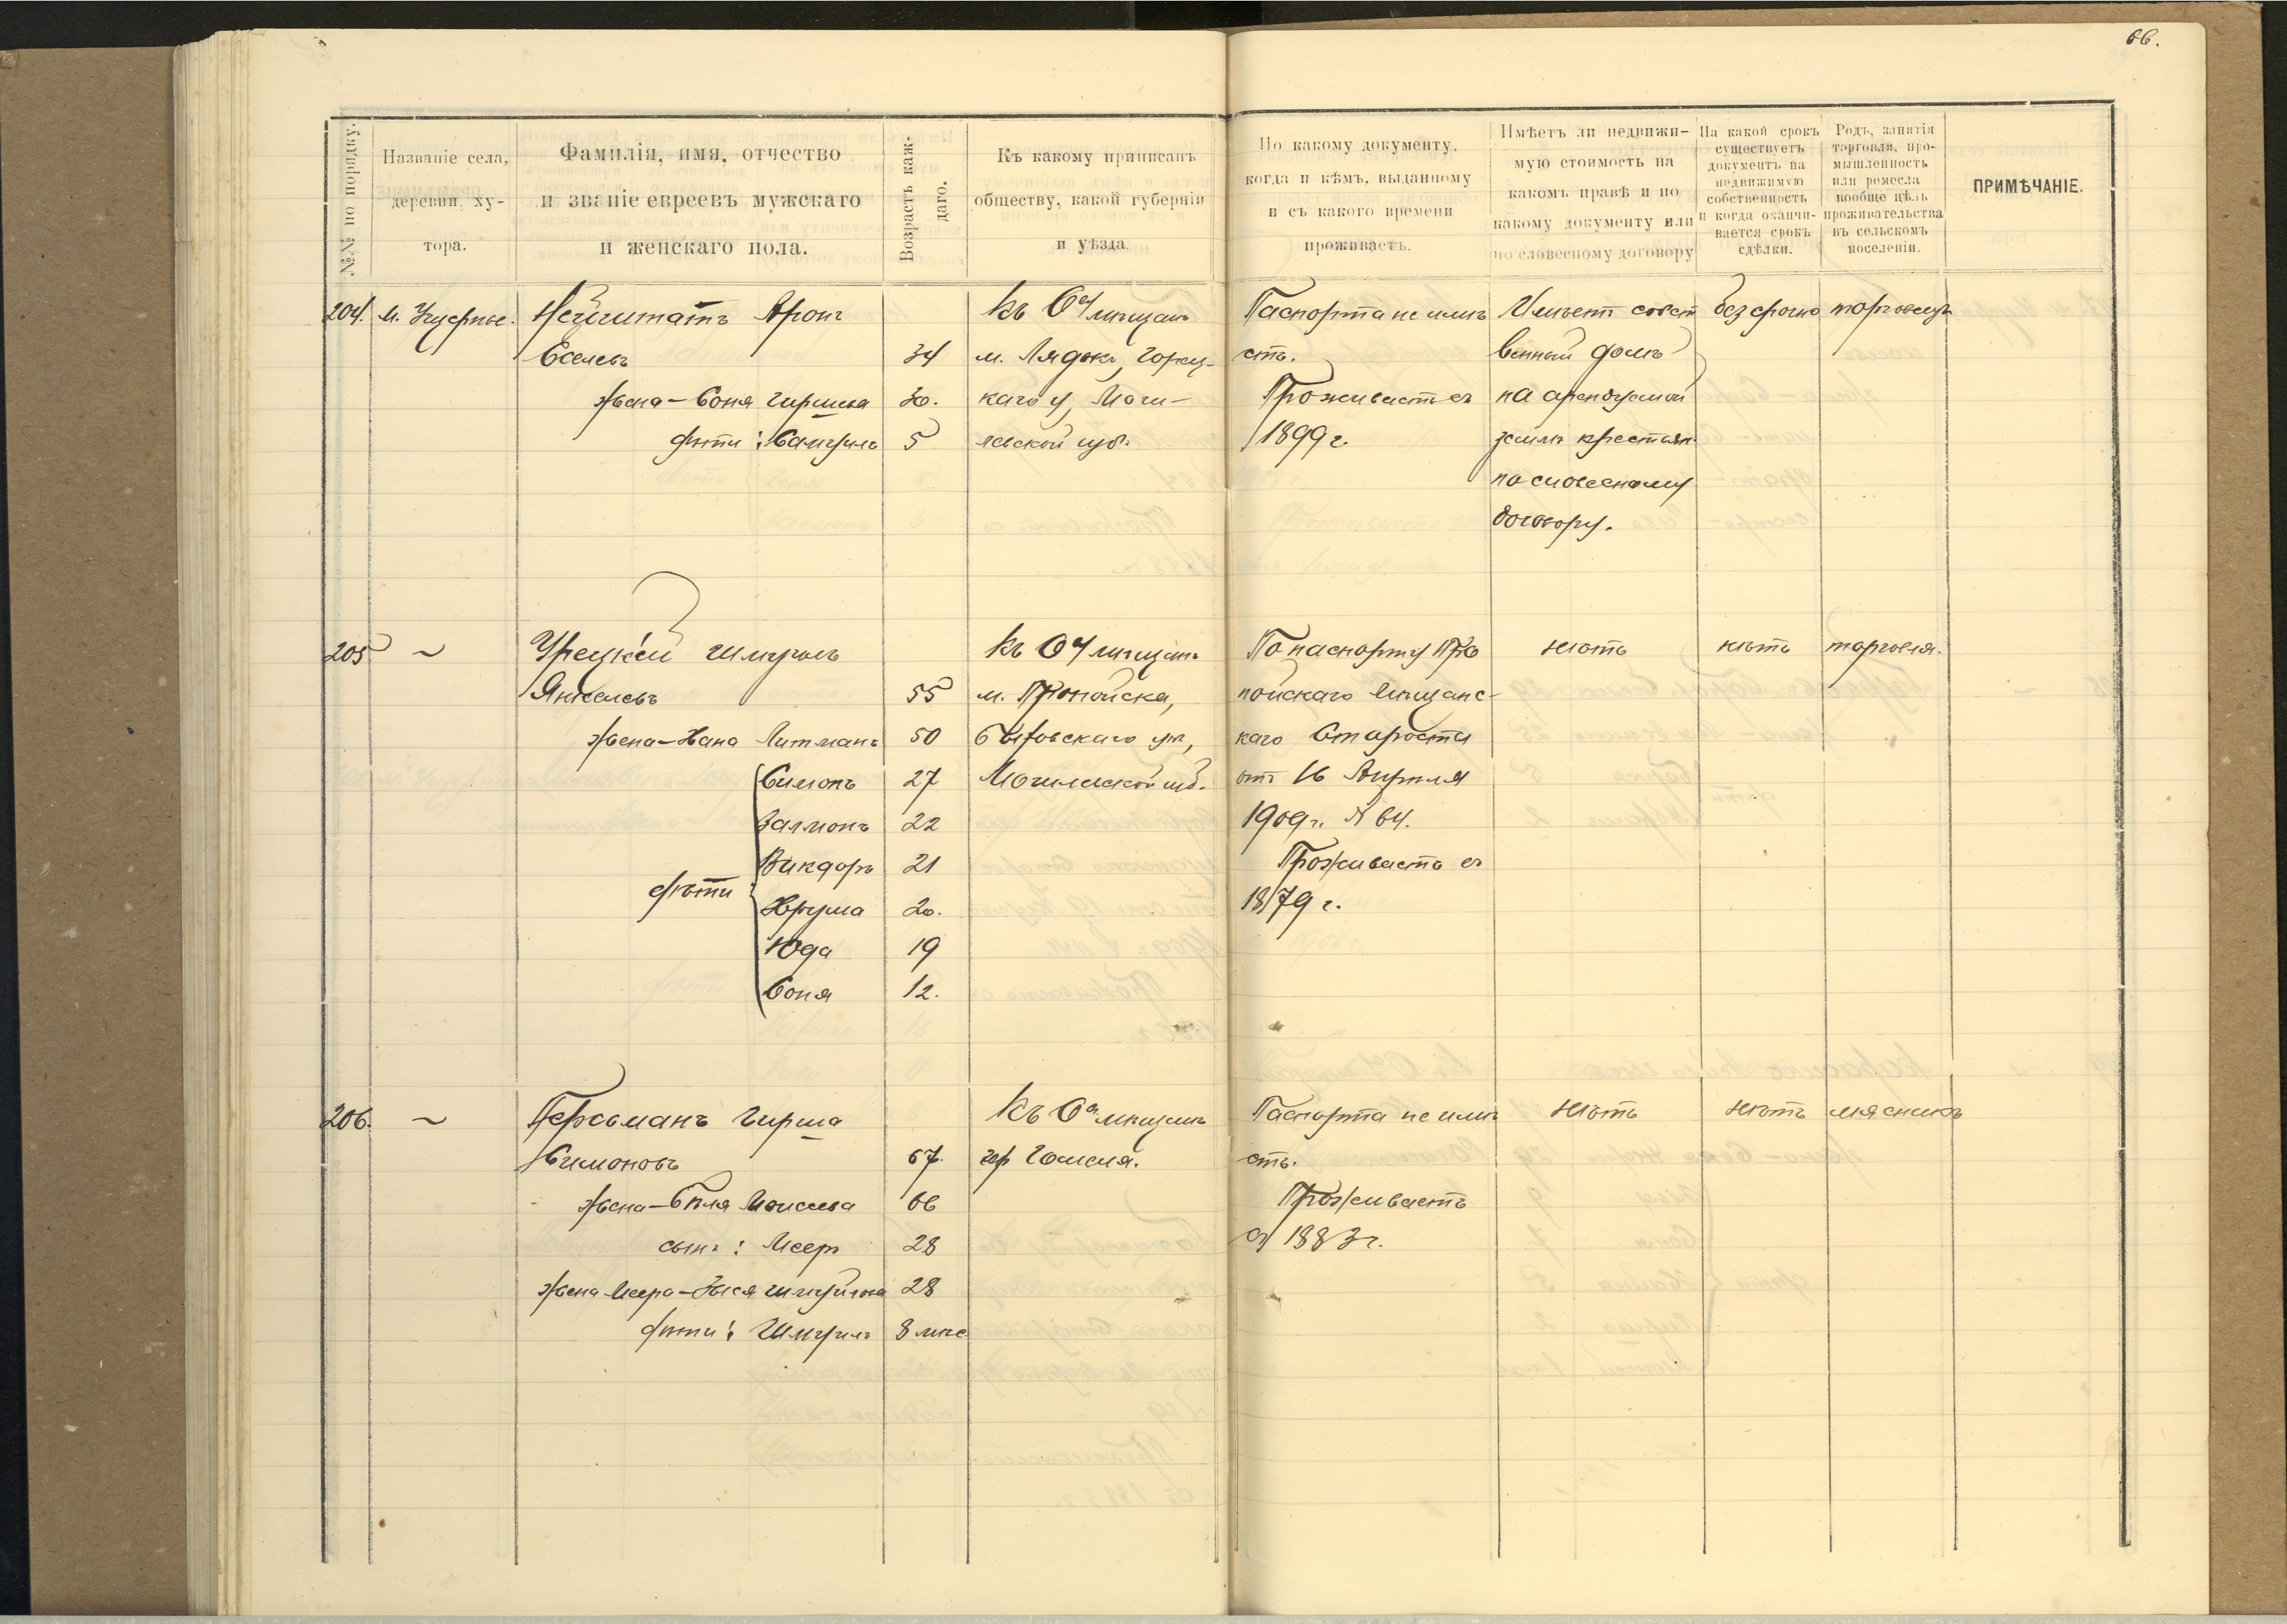 66.
№№ по порядку.
Названіе села, деревни, ху-тора.
Фамилія, имя, отчество
и званіе евреевъ мужскаго
и женскаго пола.
Возрастъ каж-даго.
Къ какому приписанъ
обществу, какой губерніи
и уѣзда.
По какому документу,
когда и кѣмъ, выданному
и съ какого времени
проживаетъ.
Имѣетъ ли недвижи-
мую стоимость на
какомъ правѣ и по
какому документу или
по словесному договору
На какой срокъ
существуетъ
документъ на
недвижимую
собственность
и когда оканчи-
вается срокъ
сдѣлки.
Родъ, занятія
торговли, про-
мышленность
или ремесла
вообще цѣль
проживательства
въ сельскомъ
поселеніи.
ПРИМѢЧАНІЕ.
204. м. Нейштатъ Аронъ
Еселевъ 34
жена - Соня Гиршева 30.
дѣти: Самуилъ 5
Къ О-у мѣщанъ
м. Ляды, Горец-
каго у, Моги-
левской губ.
Паспорта не имѣ
етъ.
Проживаетъ съ
1899 г.
Имѣетъ собст
венный домъ
на арендуемой
землѣ крестьян
по словесному
договору.
безсрочно
торговецъ
205 ~ Урецкій Шмуилъ
Янкелевъ 55
жена - Хана Литманъ 50
дѣти
Симонъ 27
Залмонъ 22
Викдоръ 21
Фрума 20.
Юда 19
Соня 12.
Къ О-у мѣщанъ
м. Пропойска,
Быховскаго уѣ,
Могилевской губ.
По паспорту Про
пойскаго Мѣщанс-
каго Старосты
отъ 16 Апрѣля
1909 г. № 64.
Проживаетъ съ
1879 г.
нѣтъ
нѣтъ
торговля.
206. ~ Персманъ Гирша
Симоновъ 67.
жена - Бѣля Моисеева 66
сынъ: Мееръ 28
жена Меера - Шмуйлова 28
дѣти: Шмуилъ 8 мѣс
Къ О-у мѣщанъ
гор Гомеля.
Паспорта не имѣ
етъ.
Проживаетъ
съ 1883 г.
нѣтъ
нѣтъ
мясникъ